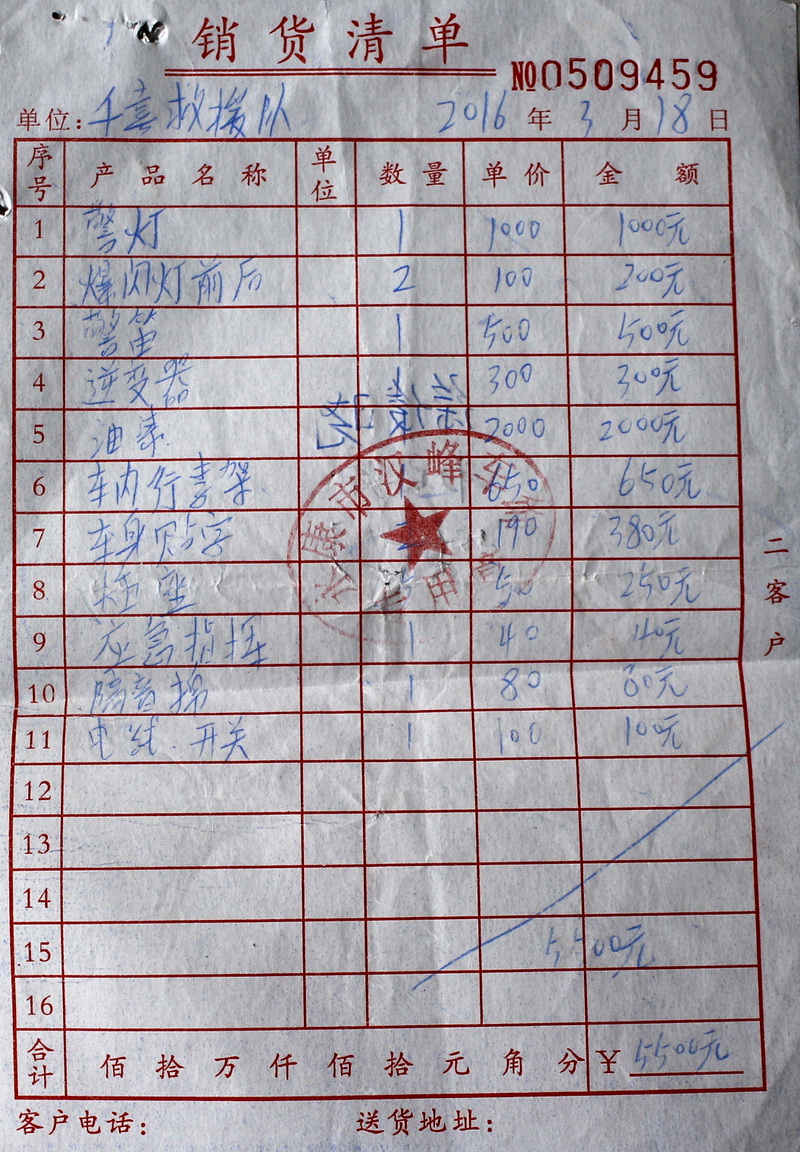 销货清单
№0509459
单位：千喜救援队 2016年3月18日
序号 产品名称 单位 数量 单价 金额
1 警灯 1 1000 1000元
2 爆闪灯前后 2 100 200元
3 警笛 1 500 500元
4 逆变器 1 300 300元
5 油漆 2000 2000元
6 车内行李架 1 650 650元
7 车身贴字 2 190 380元
8 座 5 50 250元
9 应急指挥 1 40 40元
10 隔音棉 1 80 80元
11 电线.开关 1 100 100元
12
13
14
15 5500元
16
合计 佰拾万仟佰拾元角分 ¥5500元
客户电话： 送货地址：
二客户
永康市汉峰